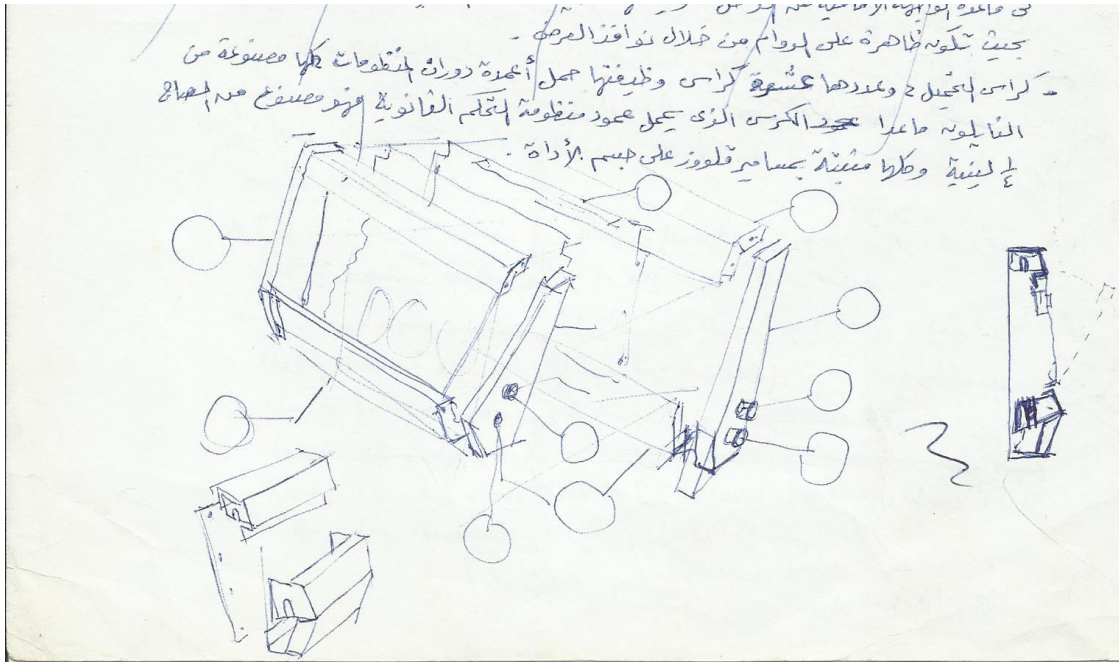 في قاعدة الواجهة الأمامية من
بحيث تكون ظاهرة على الدوام من خلال نوافذ العرض .
- كراس التحميل : وعددها عشرة كراس وظيفتها حمل أعمدة دوران المنظومات كلها مصنوعة من
النايلون ماعدا الكرس الذى يحمل عمود منظومة التحكم القانونية فهو مصنوع من الصاج
¼ لينية وكلها مثبتة بمسامير قلووز على جسم الأداة .